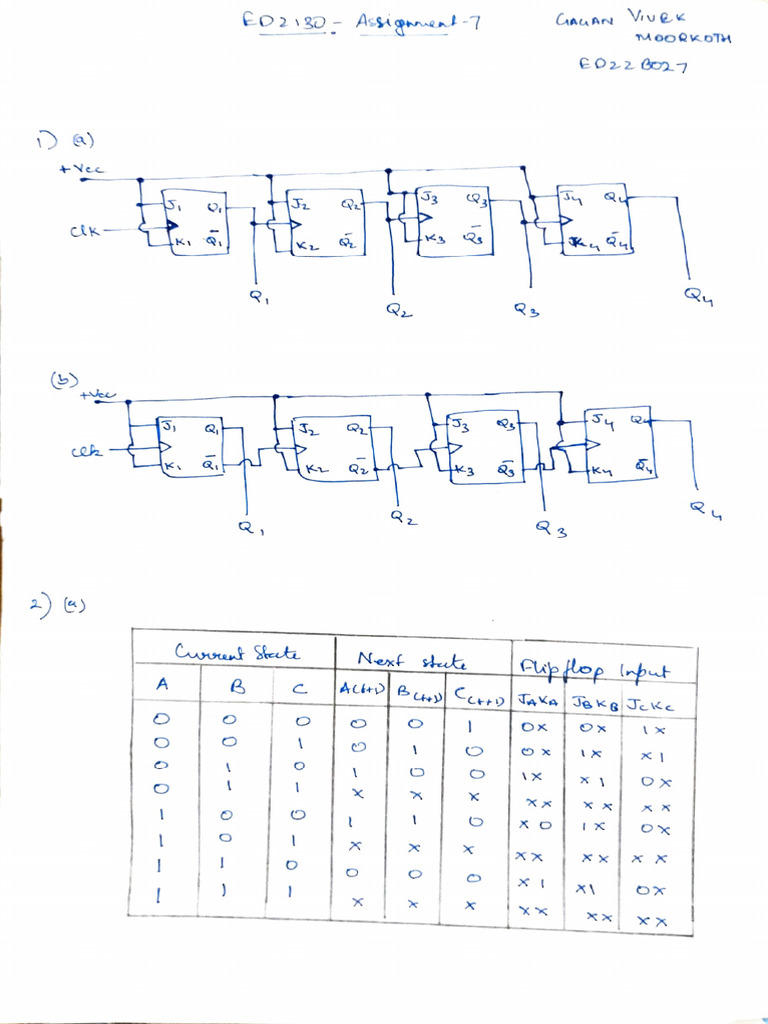 ED2130 - Assignment-7
GAGAN VIVEK
MOORKOTH
ED22B027
1) (a)
+Vcc
J1 Q1 J2 Q2 J3 Q3 J4 Q4
Clk
K1 Q̅1 K2 Q̅2 K3 Q̅3 K4 Q̅4
Q1 Q2 Q3 Q4
(b)
+Vcc
J1 Q1 J2 Q2 J3 Q3 J4 Q4
Clk
K1 Q̅1 K2 Q̅2 K3 Q̅3 K4 Q̅4
Q1 Q2 Q3 Q4
2) (a)
Current State Next state Flipflop Input
A B C A(t+1) B(t+1) C(t+1) JAKA JBKB JCKC
0 0 0 0 0 1 0X 0X 1X
0 0 1 0 1 0 0X 1X X1
0 1 0 1 0 0 1X X1 0X
0 1 1 X X X XX XX XX
1 0 0 1 1 0 X0 1X 0X
1 0 1 X X X XX XX XX
1 1 0 0 0 0 X1 X1 0X
1 1 1 X X X XX XX XX